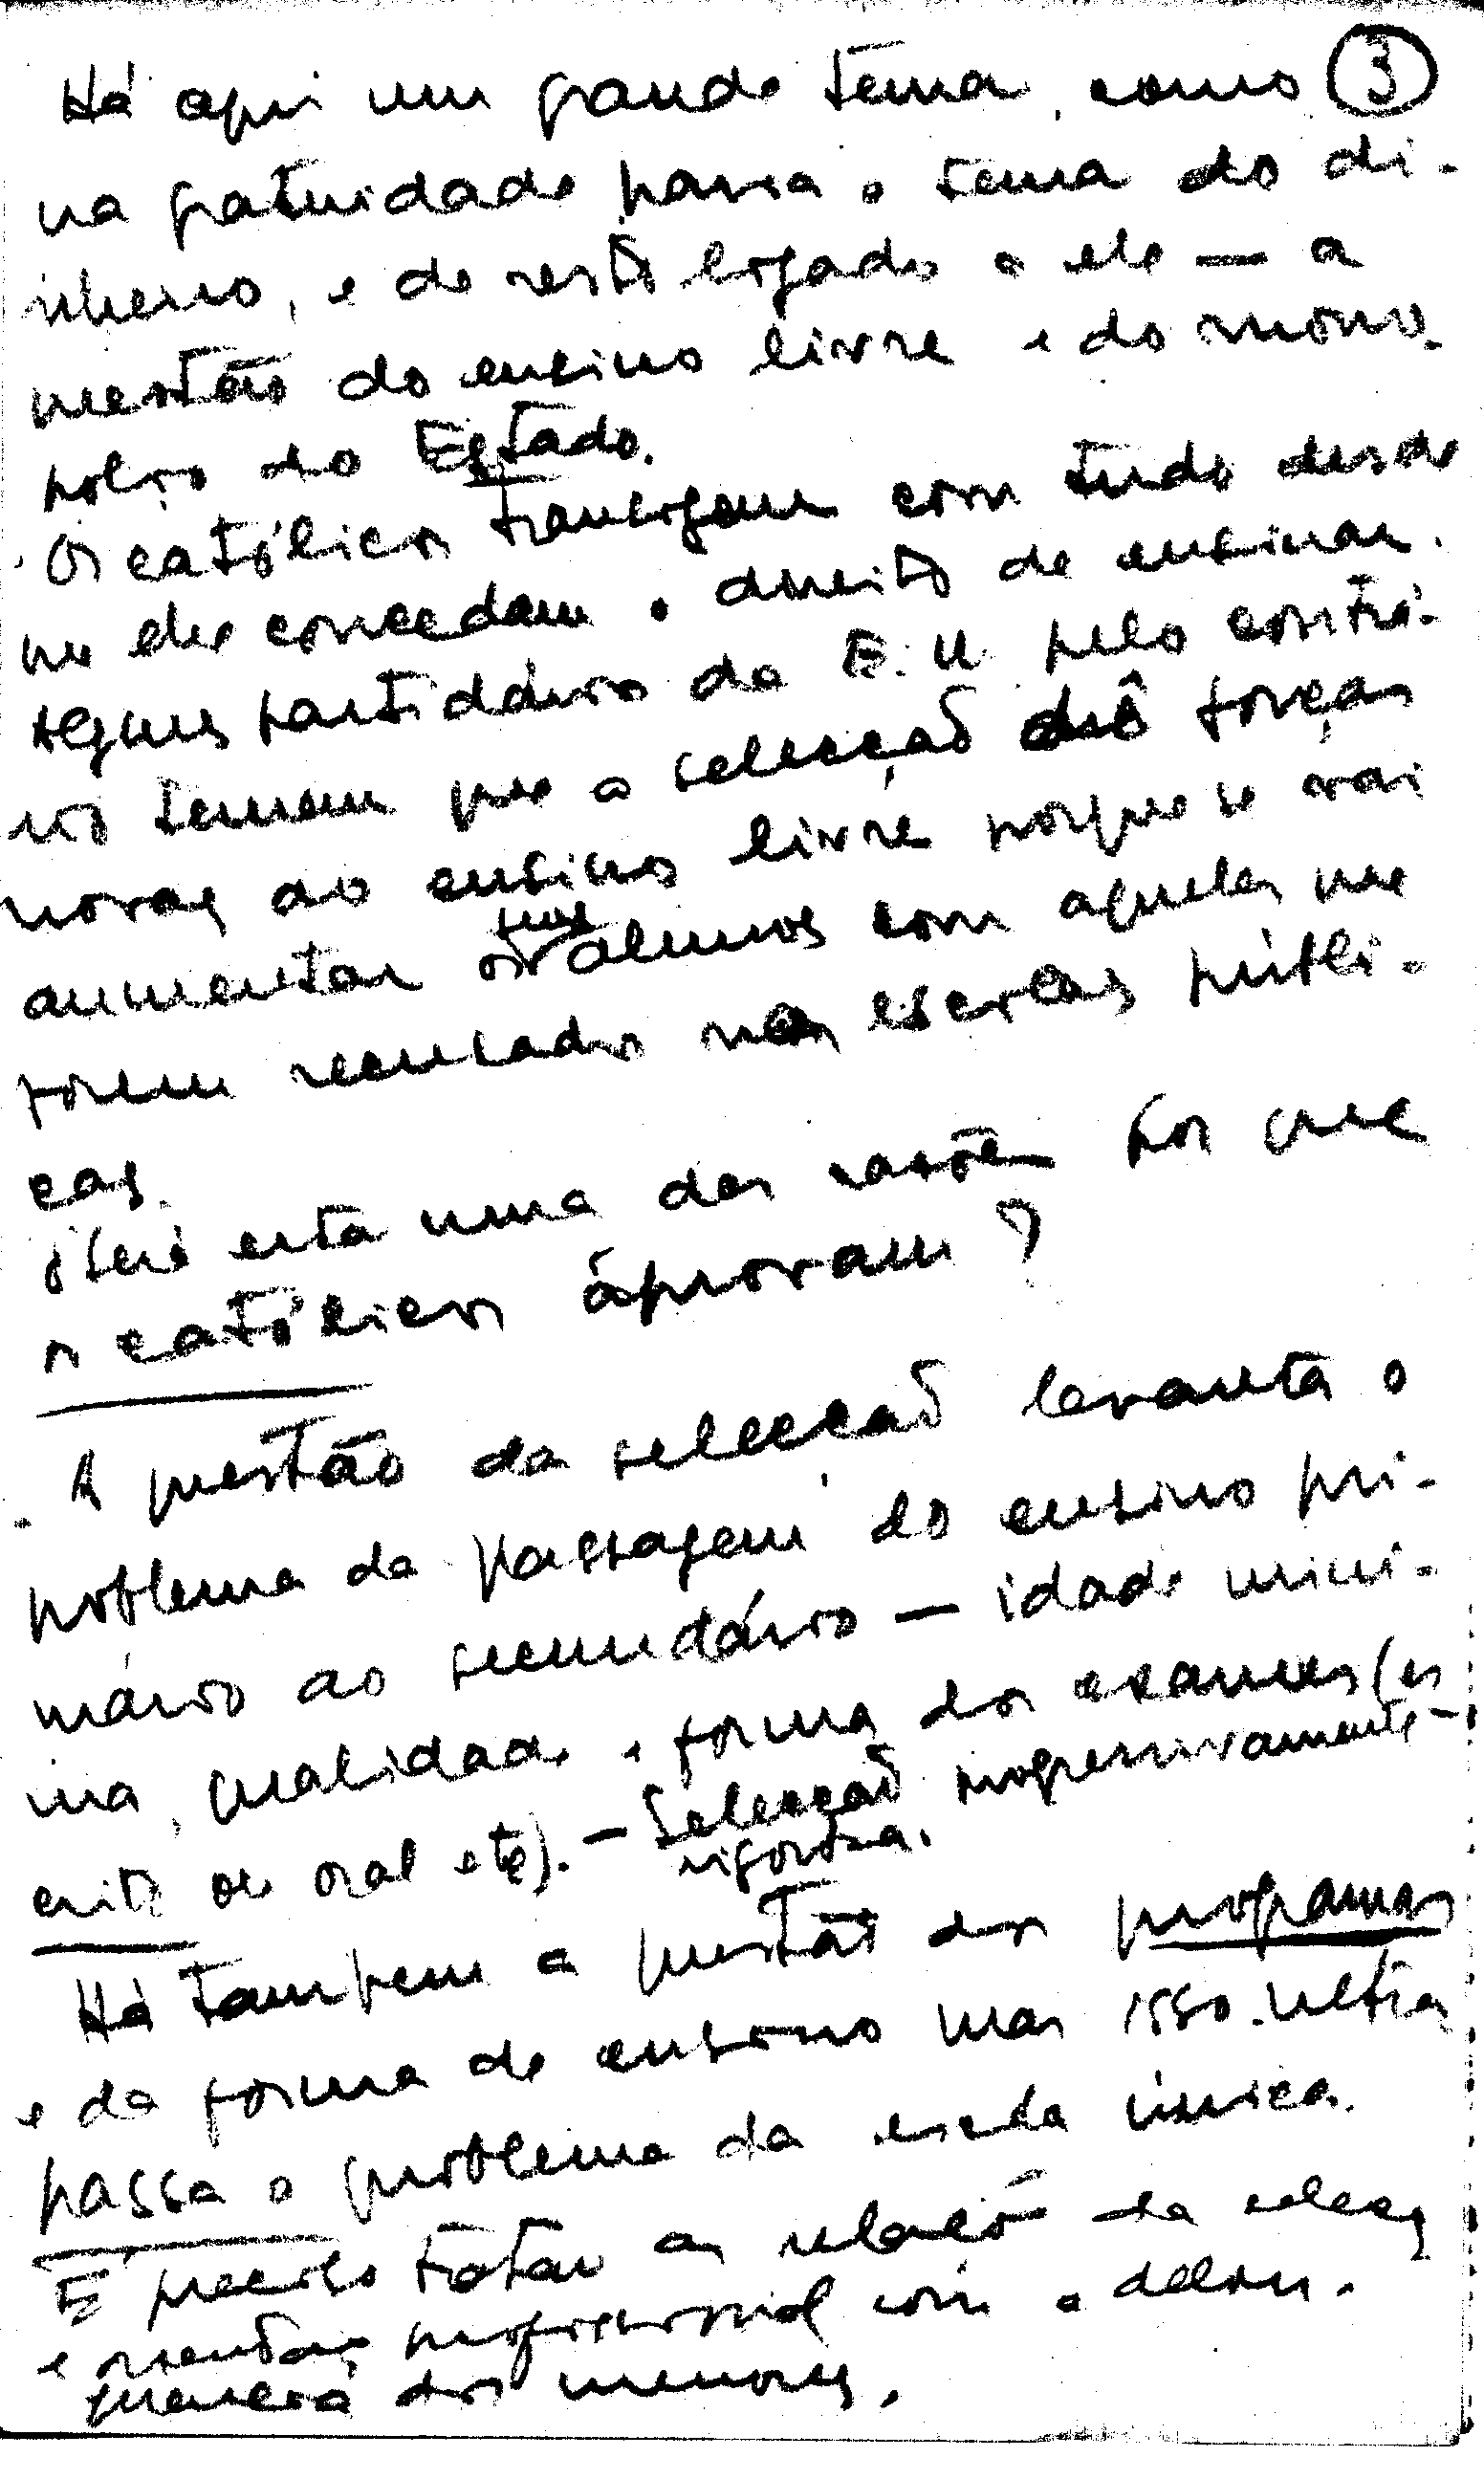 Há aqui um grande tema, como ③
na gratuidade havia o tema do di-
nheiro, e de resto ligado a ele — a
questão do ensino livre e do mono-
pólio do Estado.
. Os católicos transigem com tudo desde
que eles concedam o direito de ensinar.
Alguns partidários da E.U. pelo contrá-
rio temem que a selecção dê forças
novas ao ensino livre porque se vai
aumentar os seus alunos com aqueles que
forem recusados nas escolas públi-
cas.
¿Será esta uma das razões por que
os católicos aprovam?
. A questão da selecção levanta o
problema da passagem do ensino pri-
mário ao secundário — idade míni-
ma, qualidade e forma dos exames (es
crito ou oral etc). — Selecção progressivamente
rigorosa.
Há também a questão dos programas
e da forma de ensino mas isso ultra
passa o problema da escola única.
É preciso tratar as relações da selecção
e orientação profissional com a delin-
quência dos menores.